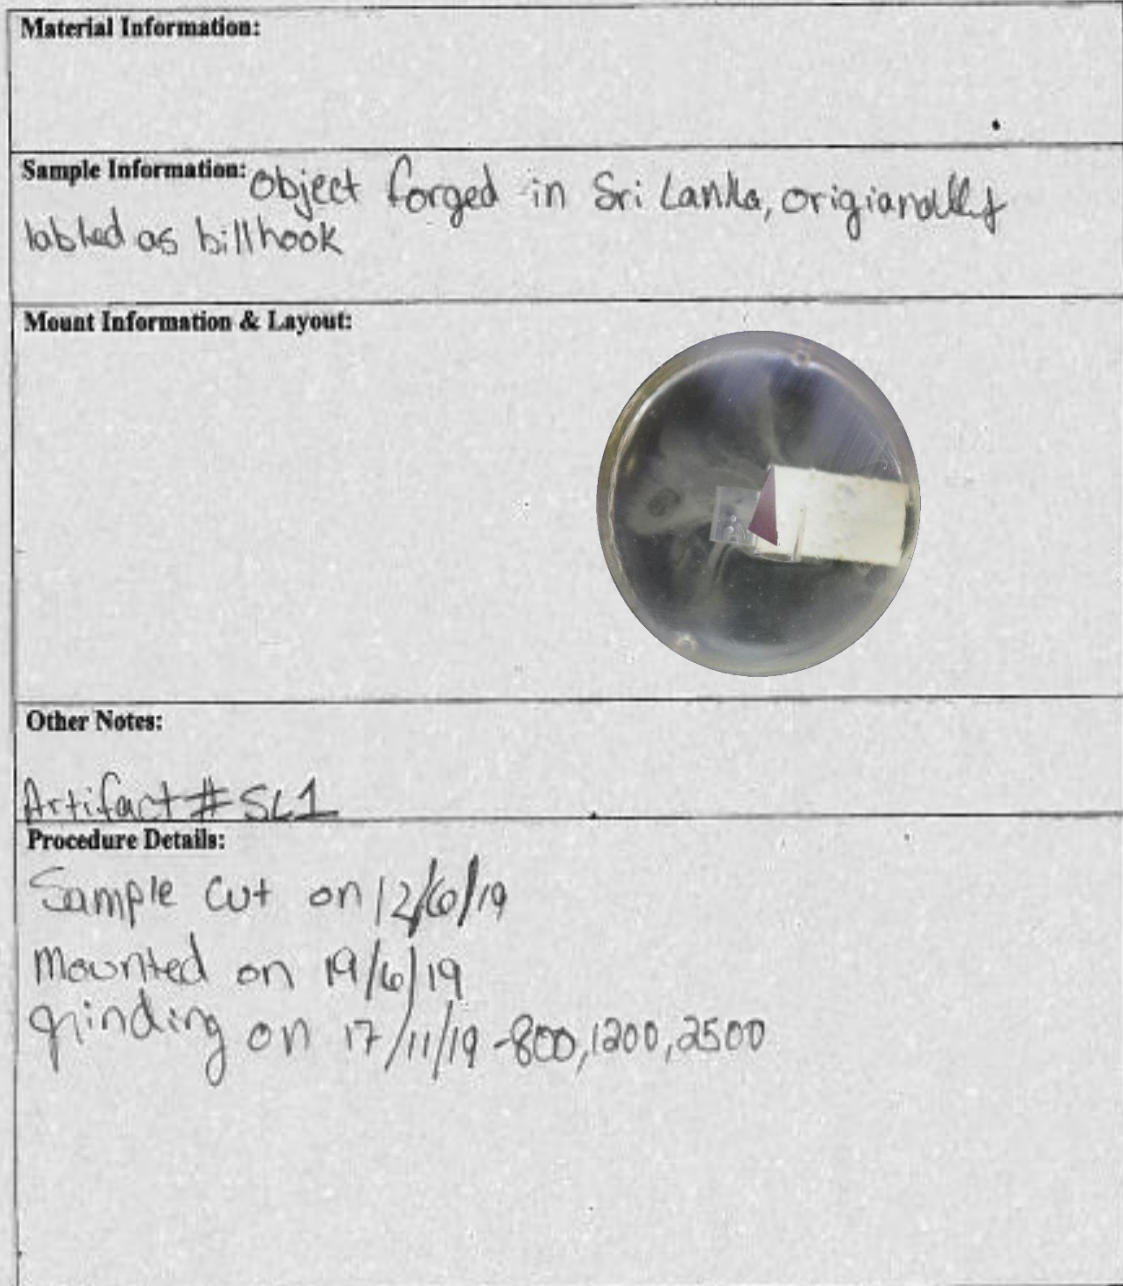 Material Information:
Sample Information: Object forged in Sri Lanka, origianally
labled as billhook
Mount Information & Layout:
Other Notes:
Artifact # SL1
Procedure Details:
Sample cut on 12/6/19
Mounted on 19/6/19
grinding on 17/11/19 -800,1200,2500